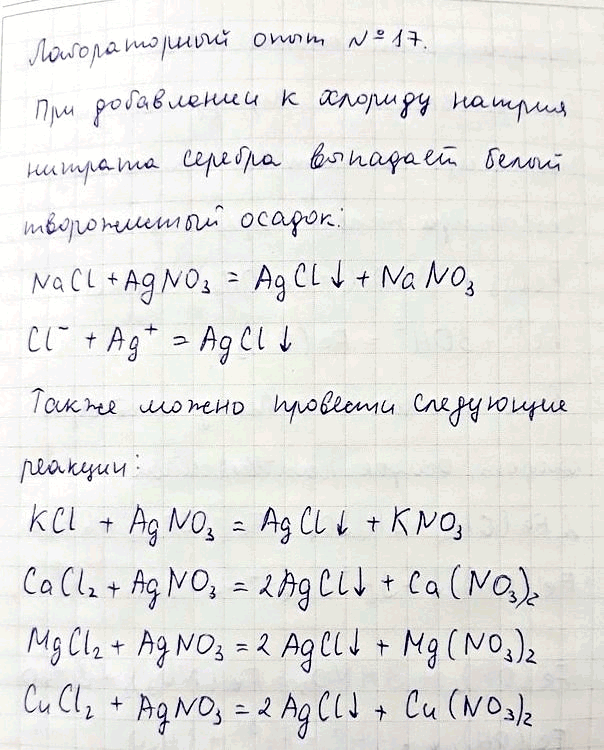 Лабораторный опыт №17.
При добавлении к хлориду натрия
нитрата серебра выпадает белый
творожистый осадок:
NaCl + AgNO₃ = AgCl↓ + NaNO₃
Cl⁻ + Ag⁺ = AgCl↓
Также можно провести следующие
реакции:
KCl + AgNO₃ = AgCl↓ + KNO₃
CaCl₂ + AgNO₃ = 2AgCl↓ + Ca(NO₃)₂
MgCl₂ + AgNO₃ = 2AgCl↓ + Mg(NO₃)₂
CuCl₂ + AgNO₃ = 2AgCl↓ + Cu(NO₃)₂